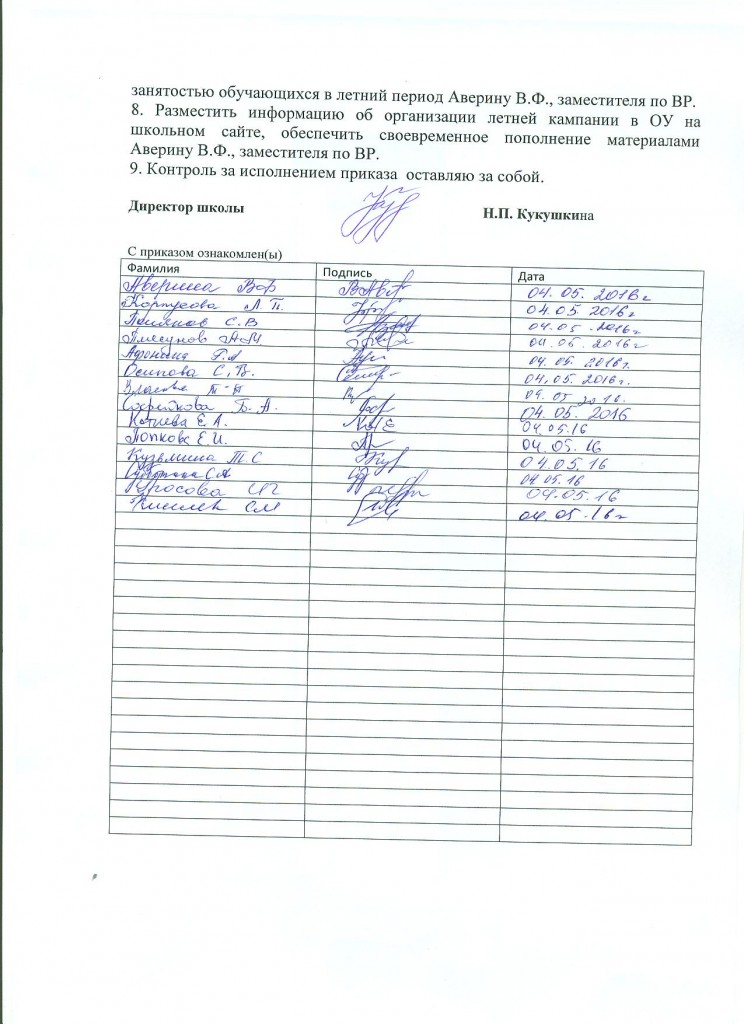 занятостью обучающихся в летний период Аверину В.Ф., заместителя по ВР.
8. Разместить информацию об организации летней кампании в ОУ на
школьном сайте, обеспечить своевременное пополнение материалами
Аверину В.Ф., заместителя по ВР.
9. Контроль за исполнением приказа оставляю за собой.
Директор школы Н.П. Кукушкина
С приказом ознакомлен(ы)
Фамилия Подпись Дата
Аверина В.Ф 04.05.2016г
Л.П. 04.05.2016г
С.В 04.05.2016г
Плясунов А.М 04.05.2016г
Афонина 04.05.2016г.
Осипова С.В. 04.05.2016г.
04.05.2016.
Б.А. 04.05.2016
Е.А. 04.05.16
Попкова Е.И. 04.05.16
Кузьмина Т.С 04.05.16
04.05.16
04.05.16
Киселев СМ 04.05.16г